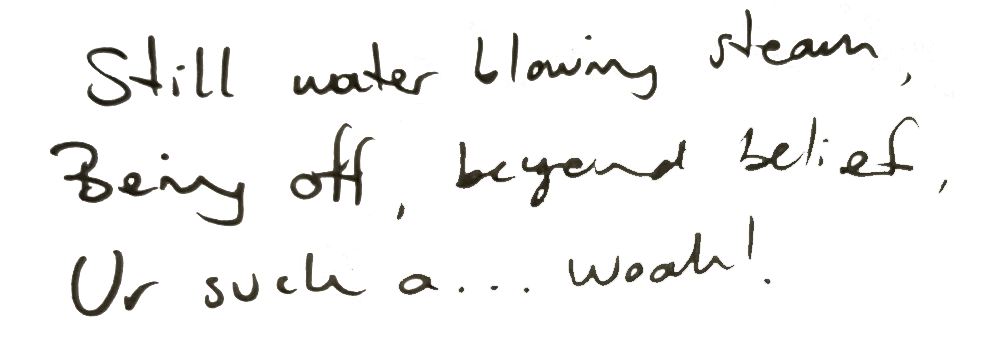 Still water blowing steam,
Being off, beyond belief,
Ur such a... woah!